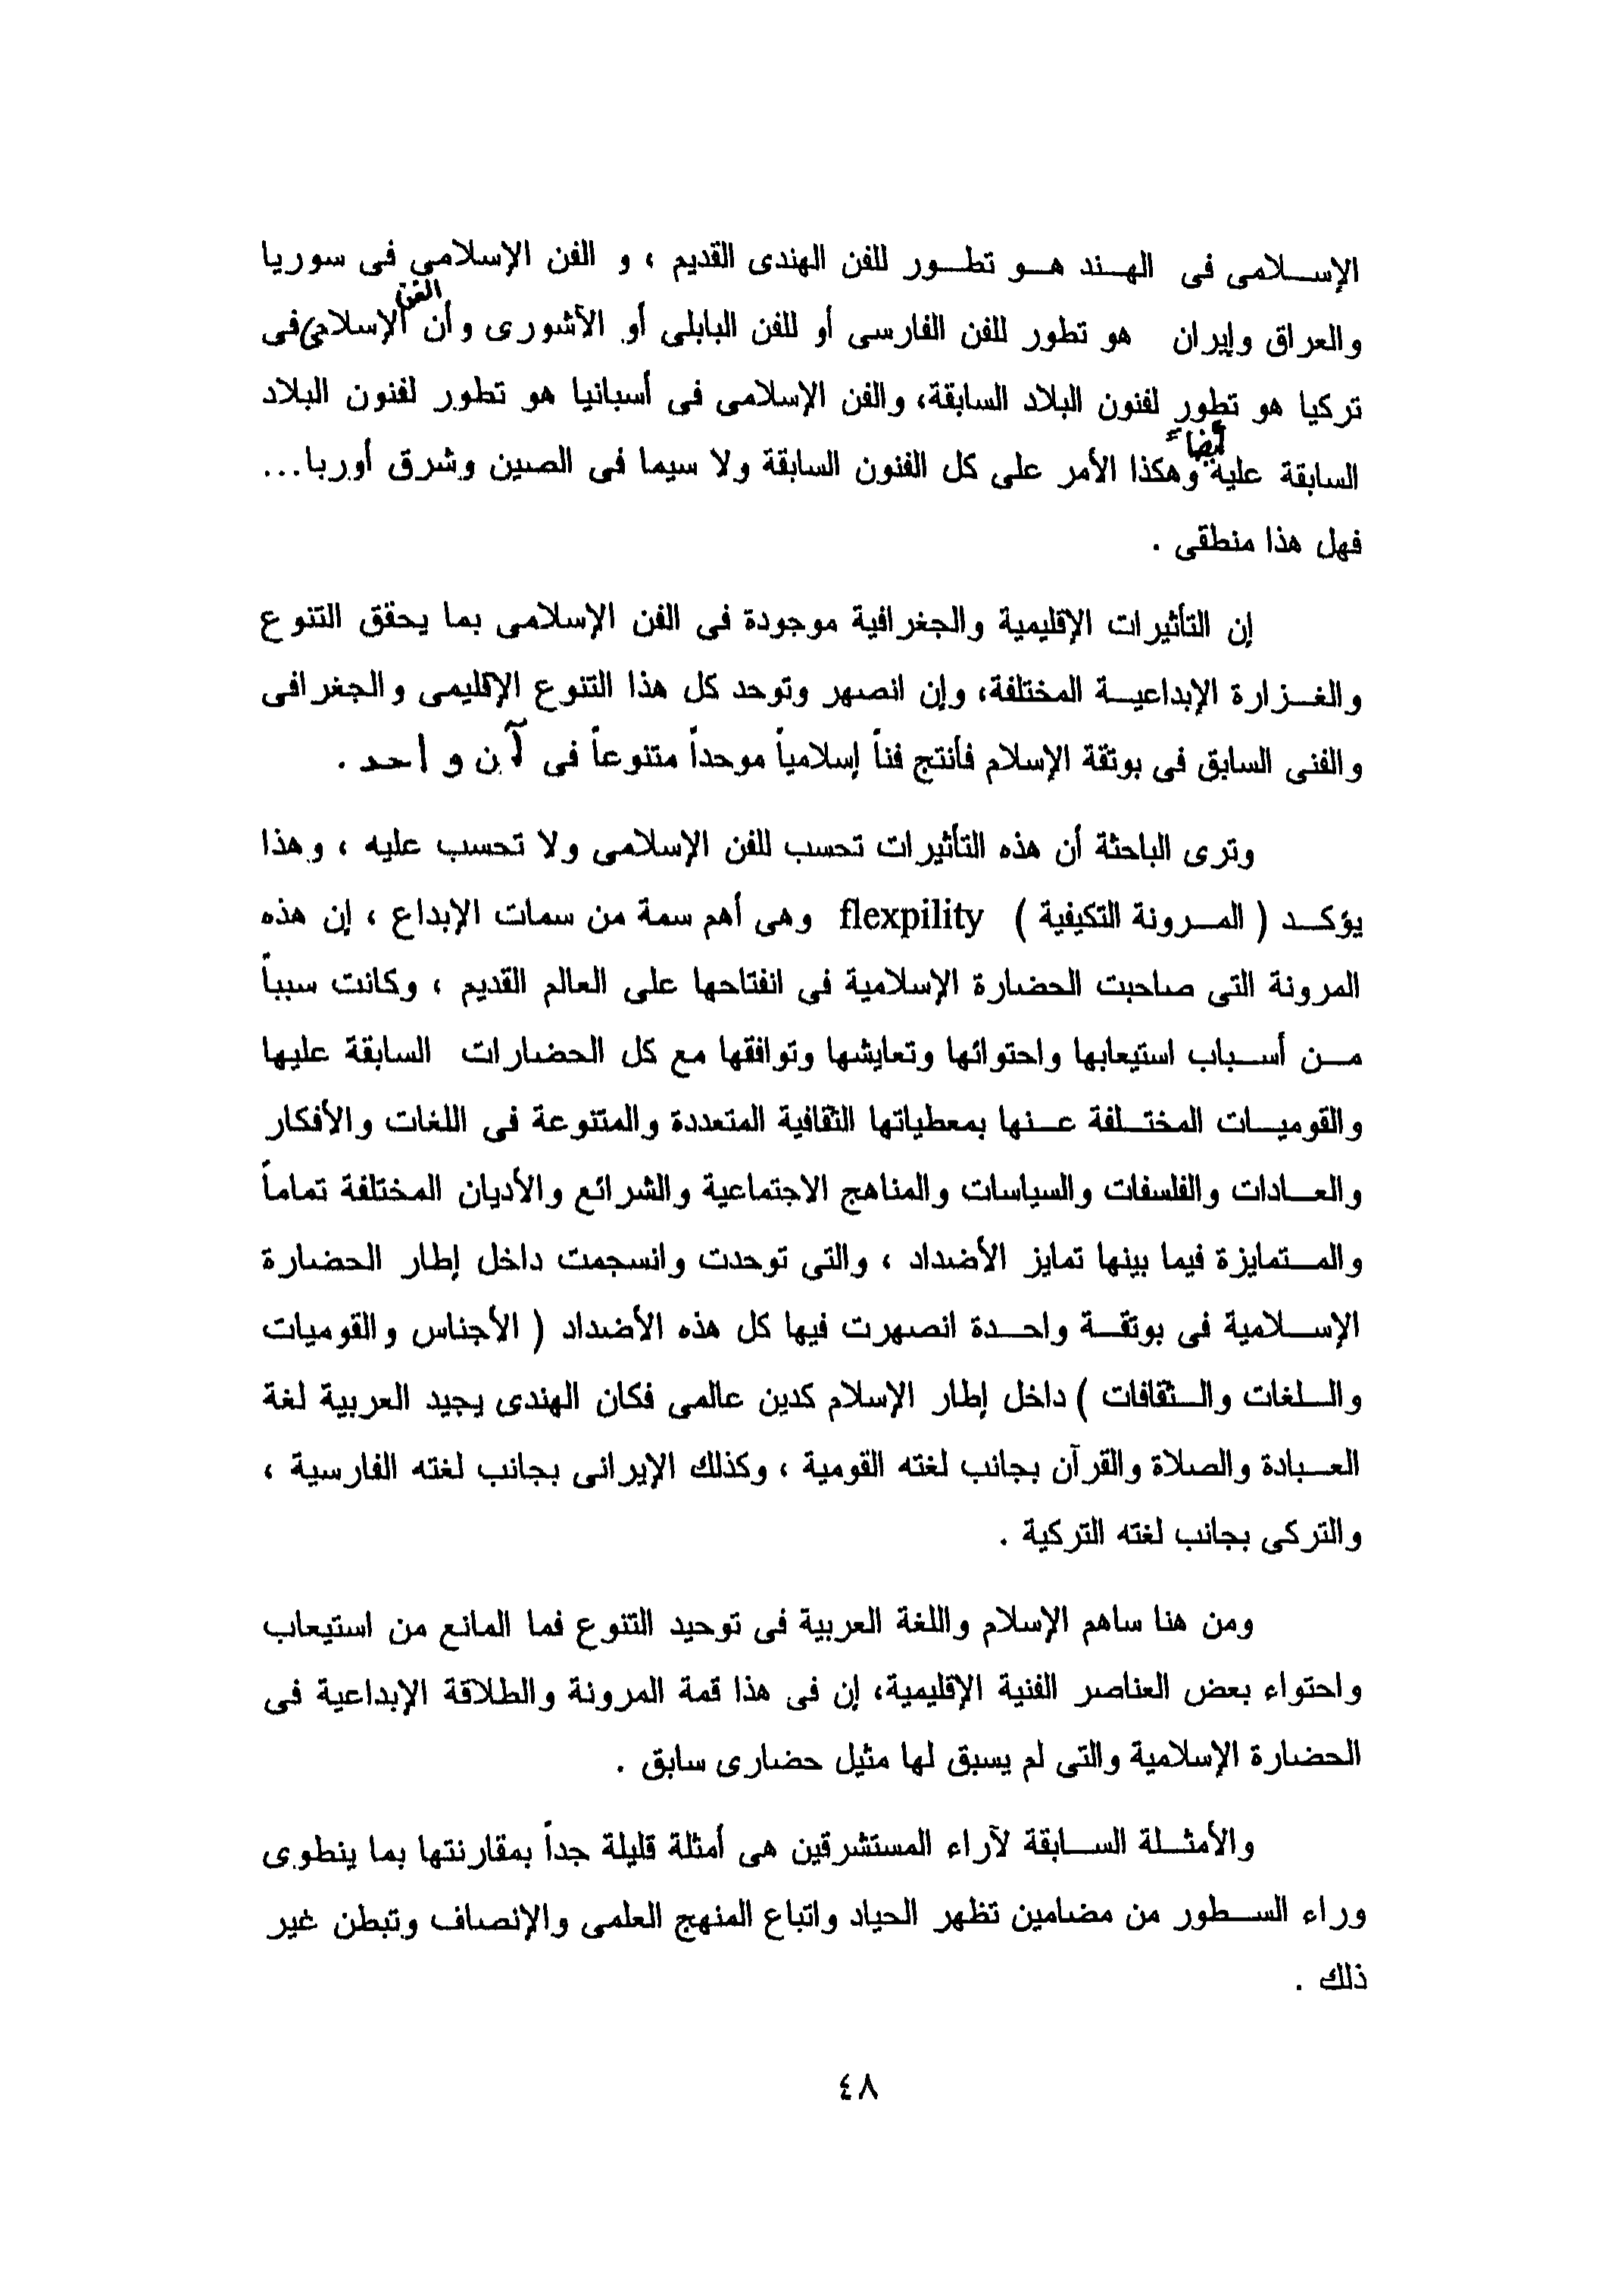 الإسلامى فى الهند هو تطور للفن الهندى القديم ، و الفن الإسلامى فى سوريا
والعراق وإيران هو تطور للفن الفارسى أو للفن البابلى أو الآشورى وأن الفن الإسلامى فى
تركيا هو تطور لفنون البلاد السابقة، والفن الإسلامى فى أسبانيا هو تطور لفنون البلاد
السابقة عليه أيضاً وهكذا الأمر على كل الفنون السابقة ولا سيما فى الصين وشرق أوربا...
فهل هذا منطقى .
إن التأثيرات الإقليمية والجغرافية موجودة فى الفن الإسلامى بما يحقق التنوع
والغزارة الإبداعية المختلفة، وإن انصهر وتوحد كل هذا التنوع الإقليمى والجغرافى
والفنى السابق فى بوتقة الإسلام فأنتج فناً إسلامياً موحداً متنوعاً فى آن واحد .
وترى الباحثة أن هذه التأثيرات تحسب للفن الإسلامى ولا تحسب عليه ، وهذا
يؤكد ( المرونة التكيفية ) flexpility وهى أهم سمة من سمات الإبداع ، إن هذه
المرونة التى صاحبت الحضارة الإسلامية فى انفتاحها على العالم القديم ، وكانت سبباً
من أسباب استيعابها واحتوائها وتعايشها وتوافقها مع كل الحضارات السابقة عليها
والقوميات المختلفة عنها بمعطياتها الثقافية المتعددة والمتنوعة فى اللغات والأفكار
والعادات والفلسفات والسياسات والمناهج الاجتماعية والشرائع والأديان المختلفة تماماً
والمتمايزة فيما بينها تمايز الأضداد ، والتى توحدت وانسجمت داخل إطار الحضارة
الإسلامية فى بوتقة واحدة انصهرت فيها كل هذه الأضداد ( الأجناس والقوميات
واللغات والثقافات ) داخل إطار الإسلام كدين عالمى فكان الهندى يجيد العربية لغة
العبادة والصلاة والقرآن بجانب لغته القومية ، وكذلك الإيرانى بجانب لغته الفارسية ،
والتركى بجانب لغته التركية .
ومن هنا ساهم الإسلام واللغة العربية فى توحيد التنوع فما المانع من استيعاب
واحتواء بعض العناصر الفنية الإقليمية، إن فى هذا قمة المرونة والطلاقة الإبداعية فى
الحضارة الإسلامية والتى لم يسبق لها مثيل حضارى سابق .
والأمثلة السابقة لآراء المستشرقين هى أمثلة قليلة جداً بمقارنتها بما ينطوى
وراء السطور من مضامين تظهر الحياد واتباع المنهج العلمى والإنصاف وتبطن غير
ذلك .
٤٨